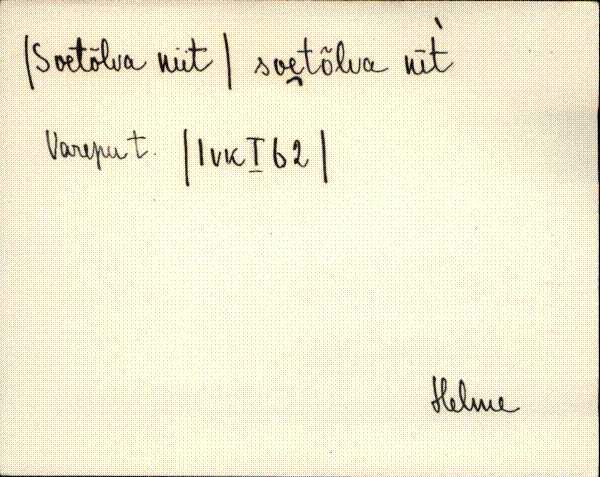 |Soetõlva niit| soe̮tõlva nīt̀
Varepu t. |IVK I 62|
Helme